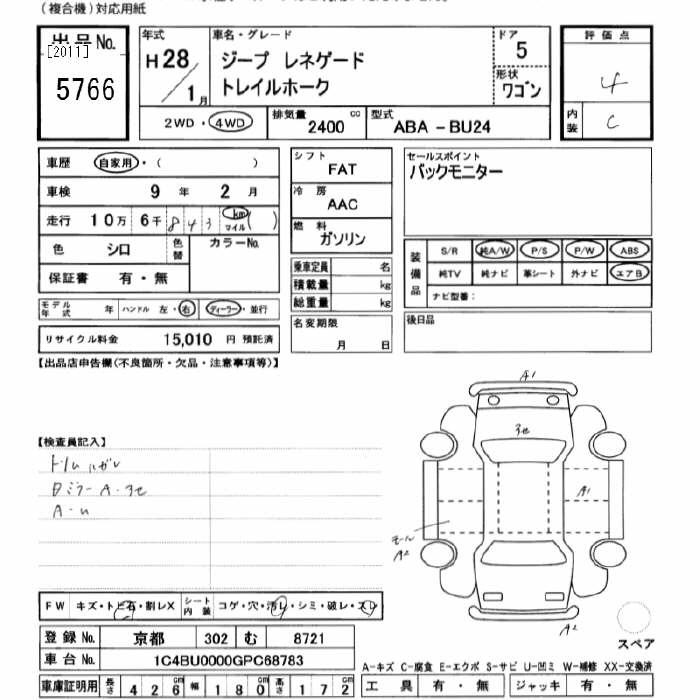 (複合機)対応用紙
出品 No.
[2011]
5766
年式
H28/1月
車名・グレード
ジープ レネゲード
トレイルホーク
ドア
5
形状
ワゴン
評価点
4
内装
C
2WD・4WD
排気量
2400 cc
型式
ABA －BU24
車歴 自家用・( )
車検 9 年 2 月
走行 10万 6千 8 4 3 km マイル ( )
色 シロ 色替 カラーNo.
保証書 有・無
モデル年式 年 ハンドル 左・右 ディーラー・並行
リサイクル料金 15,010 円 預託済
シフト
FAT
冷房
AAC
燃料
ガソリン
乗車定員 名
積載量 kg
総重量 kg
名変期限
月 日
セールスポイント
バックモニター
装備品
S/R 純A/W P/S P/W ABS
純TV 純ナビ 革シート 外ナビ エアB
ナビ型番:
後日品
【出品店申告欄(不良箇所・欠品・注意事項等)】
【検査員記入】
ドリムハガレ
日ミラー A・3セ
A・U
A1
3セ
A1
モール
A2
A2
スペア
FW キズ・トビ石・割レX シート内装 コゲ・穴・汚レ・シミ・破レ・スレ
登録 No. 京都 302 む 8721
車台 No. 1C4BU0000GPC68783
車庫証明用 長さ 426cm 幅 180cm 高さ 172cm
A-キズ C-腐食 E-エクボ S-サビ U-凹ミ W-補修 XX-交換済
工具 有・無 ジャッキ 有・無